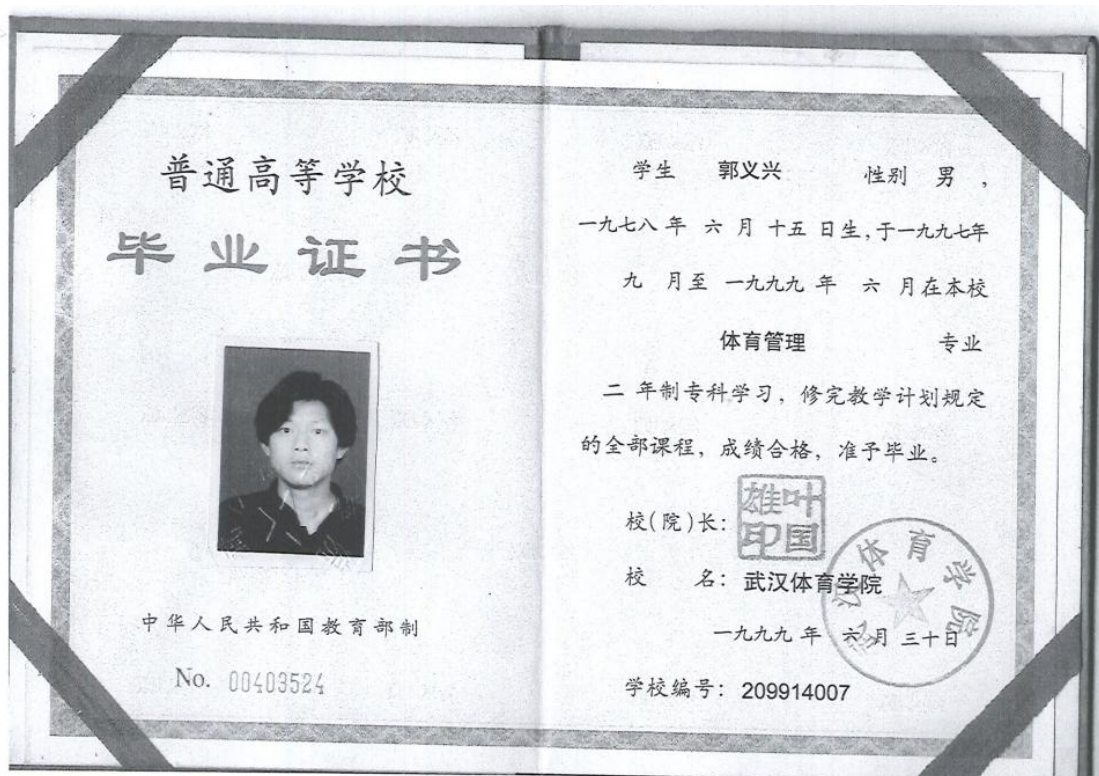 普通高等学校
毕业证书
中华人民共和国教育部制
No. 00403524
学生 郭义兴 性别 男 ,
一九七八 年 六 月 十五 日生,于一九九七年
九 月至 一九九九 年 六 月在本校
体育管理 专业
二 年制专科学习, 修完教学计划规定
的全部课程, 成绩合格, 准予毕业。
校(院)长: 叶国雄印
校 名: 武汉体育学院
武汉体育学院
一九九九 年 六 月 三十日
学校编号: 209914007